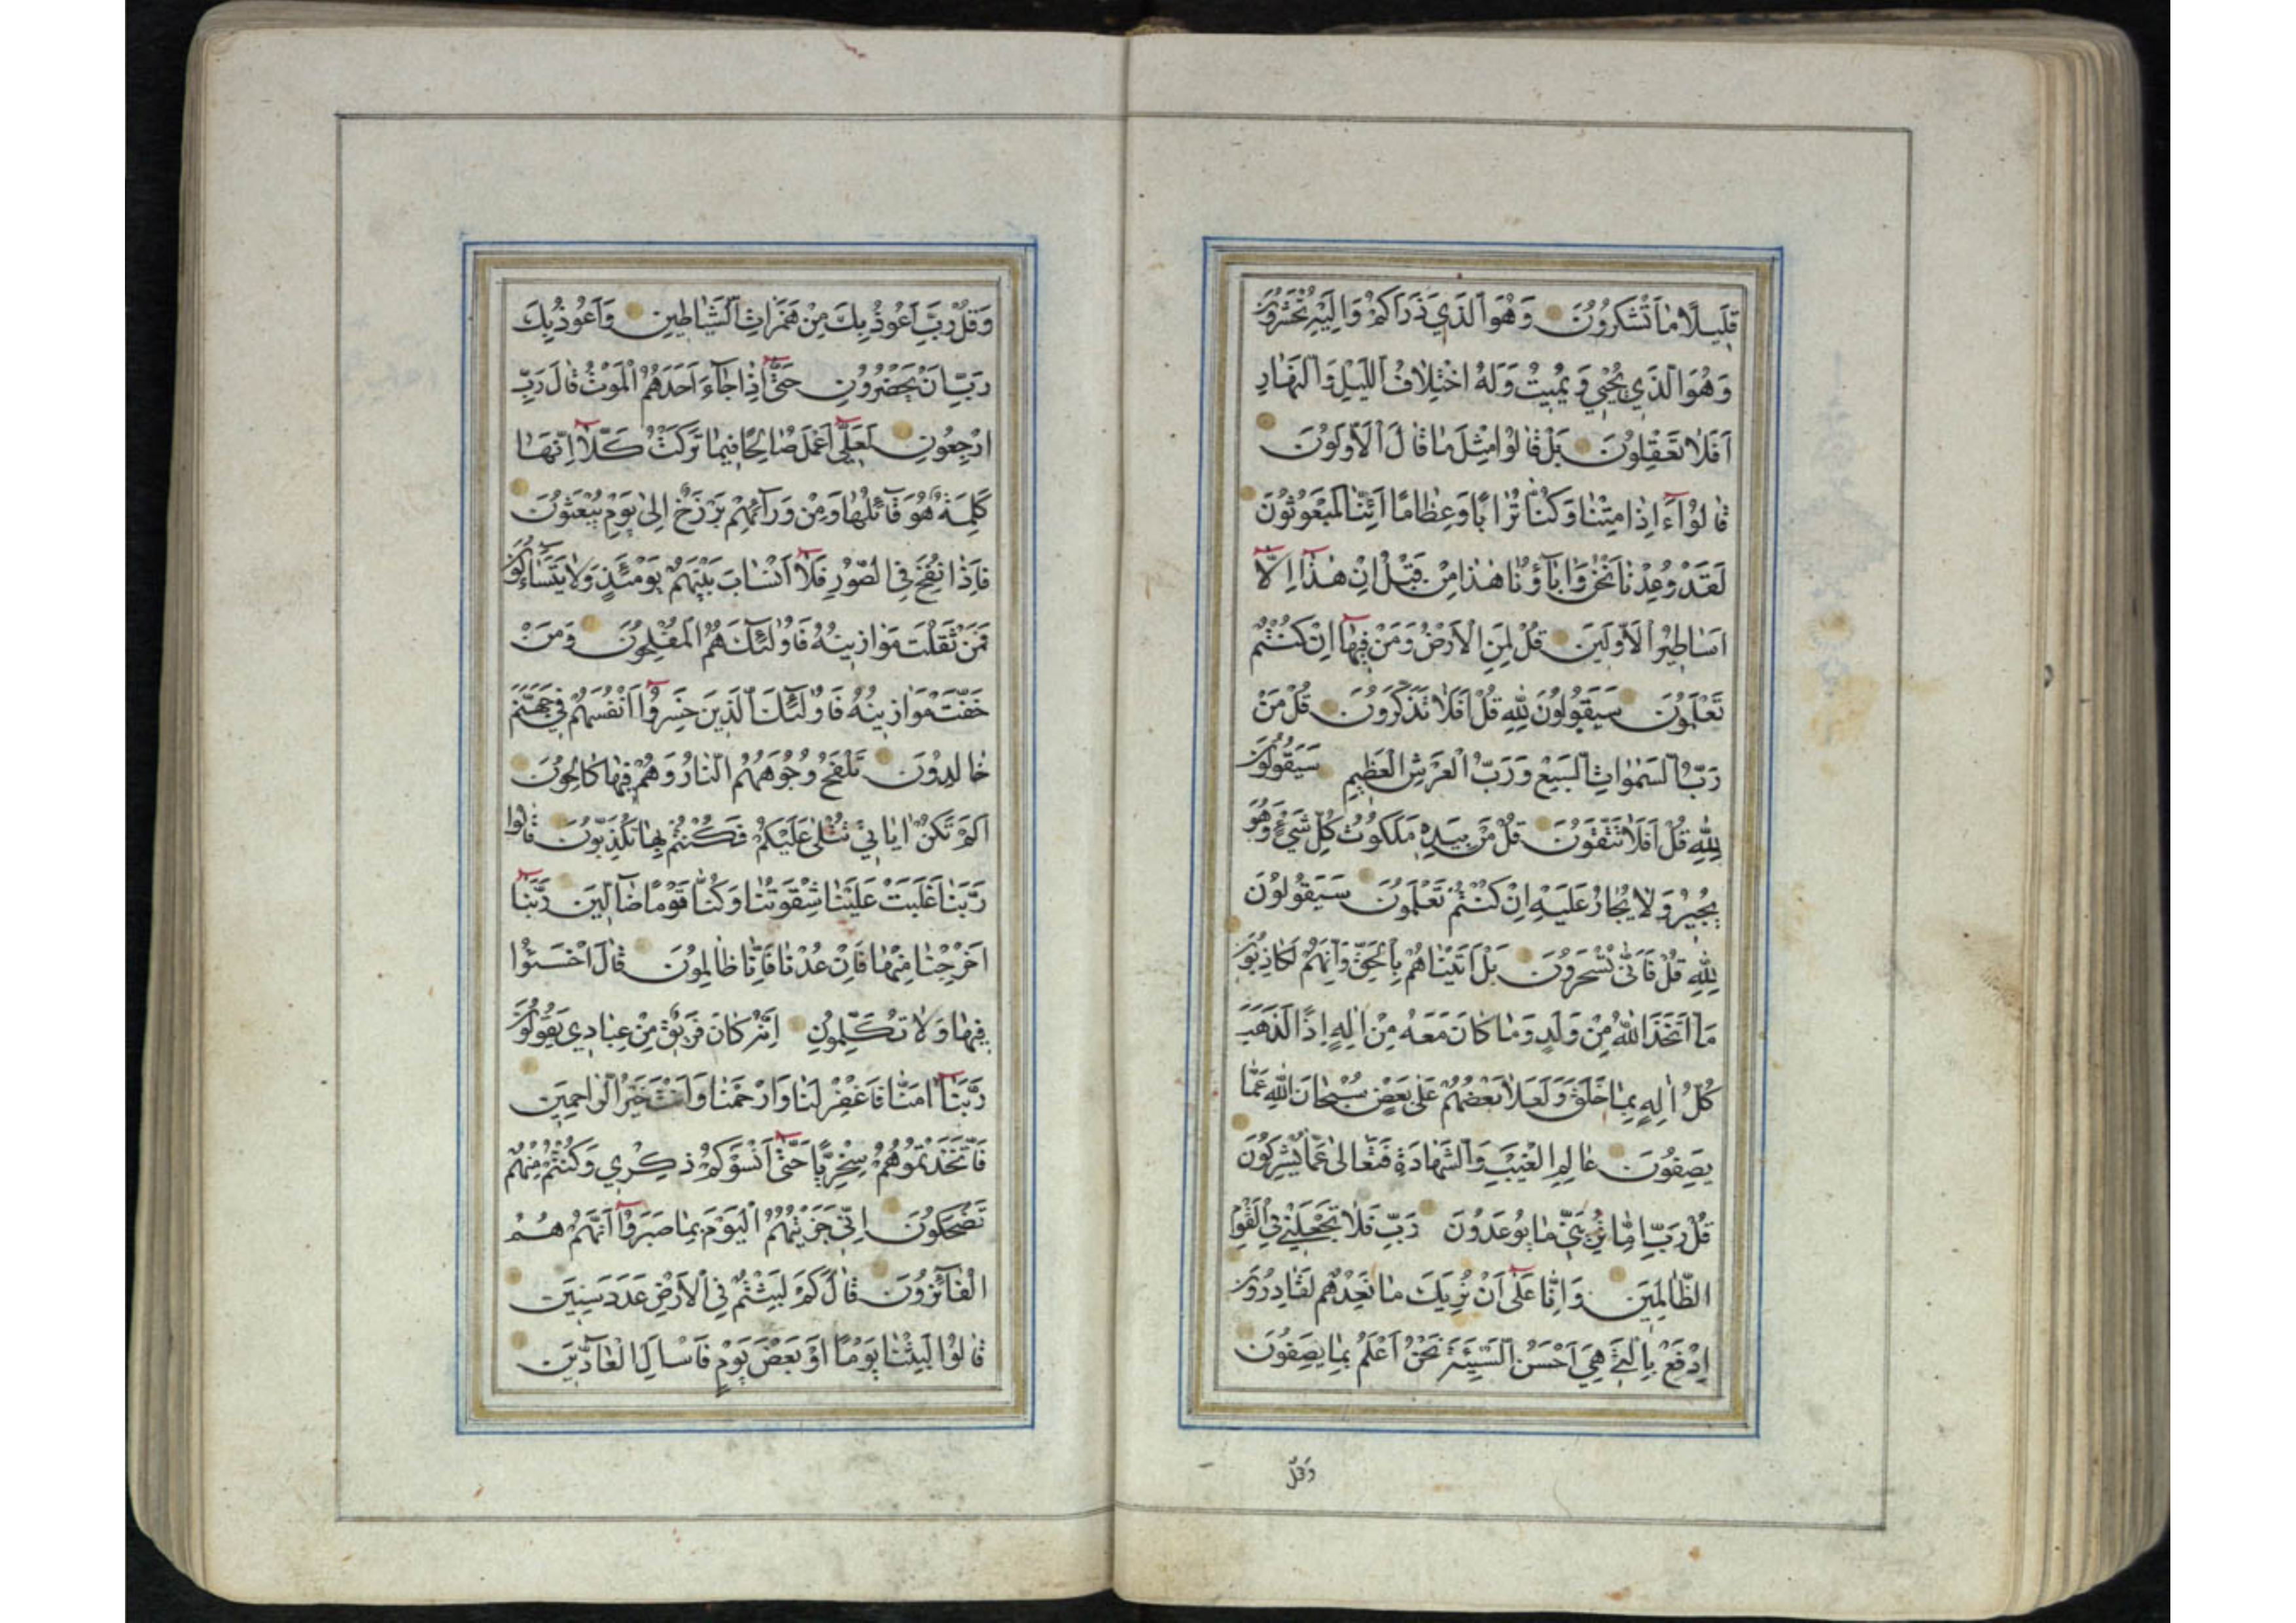 قَلِيلًا مَا تَشْكُرُونَ وَهُوَ الَّذِي ذَرَاَكُمْ وَاِلَيْهِ تُحْشَرُونَ
وَهُوَ الَّذِي يُحْيِي وَيُمِيتُ وَلَهُ اخْتِلَافُ اللَّيْلِ وَالنَّهَارِ
اَفَلَا تَعْقِلُونَ بَلْ قَالُوا مِثْلَ مَا قَالَ الْاَوَّلُونَ
قَالُوا ءَاِذَا مِتْنَا وَكُنَّا تُرَابًا وَعِظَامًا اَئِنَّا لَمَبْعُوثُونَ
لَقَدْ وُعِدْنَا نَحْنُ وَابَآؤُنَا هٰذَا مِنْ قَبْلُ اِنْ هٰذَا اِلَّا
اَسَاطِيرُ الْاَوَّلِينَ قُلْ لِمَنِ الْاَرْضُ وَمَنْ فِيهَا اِنْ كُنْتُمْ
تَعْلَمُونَ سَيَقُولُونَ لِلّٰهِ قُلْ اَفَلَا تَذَكَّرُونَ قُلْ مَنْ
رَبُّ السَّمٰوَاتِ السَّبْعِ وَرَبُّ الْعَرْشِ الْعَظِيمِ سَيَقُولُونَ
لِلّٰهِ قُلْ اَفَلَا تَتَّقُونَ قُلْ مَنْ بِيَدِهِ مَلَكُوتُ كُلِّ شَيْءٍ وَهُوَ
يُجِيرُ وَلَا يُجَارُ عَلَيْهِ اِنْ كُنْتُمْ تَعْلَمُونَ سَيَقُولُونَ
لِلّٰهِ قُلْ فَاَنّٰى تُسْحَرُونَ بَلْ اَتَيْنَاهُمْ بِالْحَقِّ وَاِنَّهُمْ لَكَاذِبُونَ
مَا اتَّخَذَ اللّٰهُ مِنْ وَلَدٍ وَمَا كَانَ مَعَهُ مِنْ اِلٰهٍ اِذًا لَذَهَبَ
كُلُّ اِلٰهٍ بِمَا خَلَقَ وَلَعَلَا بَعْضُهُمْ عَلٰى بَعْضٍ سُبْحَانَ اللّٰهِ عَمَّا
يَصِفُونَ عَالِمِ الْغَيْبِ وَالشَّهَادَةِ فَتَعَالٰى عَمَّا يُشْرِكُونَ
قُلْ رَبِّ اِمَّا تُرِيَنِّي مَا يُوعَدُونَ رَبِّ فَلَا تَجْعَلْنِي فِي الْقَوْمِ
الظَّالِمِينَ وَاِنَّا عَلٰى اَنْ نُرِيَكَ مَا نَعِدُهُمْ لَقَادِرُونَ
اِدْفَعْ بِالَّتِي هِيَ اَحْسَنُ السَّيِّئَةَ نَحْنُ اَعْلَمُ بِمَا يَصِفُونَ
وَقُلْ
وَقُلْ رَبِّ اَعُوذُ بِكَ مِنْ هَمَزَاتِ الشَّيَاطِينِ وَاَعُوذُ بِكَ
رَبِّ اَنْ يَحْضُرُونِ حَتّٰى اِذَا جَآءَ اَحَدَهُمُ الْمَوْتُ قَالَ رَبِّ
ارْجِعُونِ لَعَلِّي اَعْمَلُ صَالِحًا فِيمَا تَرَكْتُ كَلَّا اِنَّهَا
كَلِمَةٌ هُوَ قَآئِلُهَا وَمِنْ وَرَآئِهِمْ بَرْزَخٌ اِلٰى يَوْمِ يُبْعَثُونَ
فَاِذَا نُفِخَ فِي الصُّورِ فَلَا اَنْسَابَ بَيْنَهُمْ يَوْمَئِذٍ وَلَا يَتَسَآءَلُونَ
فَمَنْ ثَقُلَتْ مَوَازِينُهُ فَاُولٰئِكَ هُمُ الْمُفْلِحُونَ وَمَنْ
خَفَّتْ مَوَازِينُهُ فَاُولٰئِكَ الَّذِينَ خَسِرُوا اَنْفُسَهُمْ فِي جَهَنَّمَ
خَالِدُونَ تَلْفَحُ وُجُوهَهُمُ النَّارُ وَهُمْ فِيهَا كَالِحُونَ
اَلَمْ تَكُنْ ايَاتِي تُتْلٰى عَلَيْكُمْ فَكُنْتُمْ بِهَا تُكَذِّبُونَ قَالُوا
رَبَّنَا غَلَبَتْ عَلَيْنَا شِقْوَتُنَا وَكُنَّا قَوْمًا ضَآلِّينَ رَبَّنَا
اَخْرِجْنَا مِنْهَا فَاِنْ عُدْنَا فَاِنَّا ظَالِمُونَ قَالَ اخْسَئُوا
فِيهَا وَلَا تُكَلِّمُونِ اِنَّهُ كَانَ فَرِيقٌ مِنْ عِبَادِي يَقُولُونَ
رَبَّنَا امَنَّا فَاغْفِرْ لَنَا وَارْحَمْنَا وَاَنْتَ خَيْرُ الرَّاحِمِينَ
فَاتَّخَذْتُمُوهُمْ سِخْرِيًّا حَتّٰى اَنْسَوْكُمْ ذِكْرِي وَكُنْتُمْ مِنْهُمْ
تَضْحَكُونَ اِنِّي جَزَيْتُهُمُ الْيَوْمَ بِمَا صَبَرُوا اَنَّهُمْ هُمُ
الْفَآئِزُونَ قَالَ كَمْ لَبِثْتُمْ فِي الْاَرْضِ عَدَدَ سِنِينَ
قَالُوا لَبِثْنَا يَوْمًا اَوْ بَعْضَ يَوْمٍ فَاسْاَلِ الْعَآدِّينَ